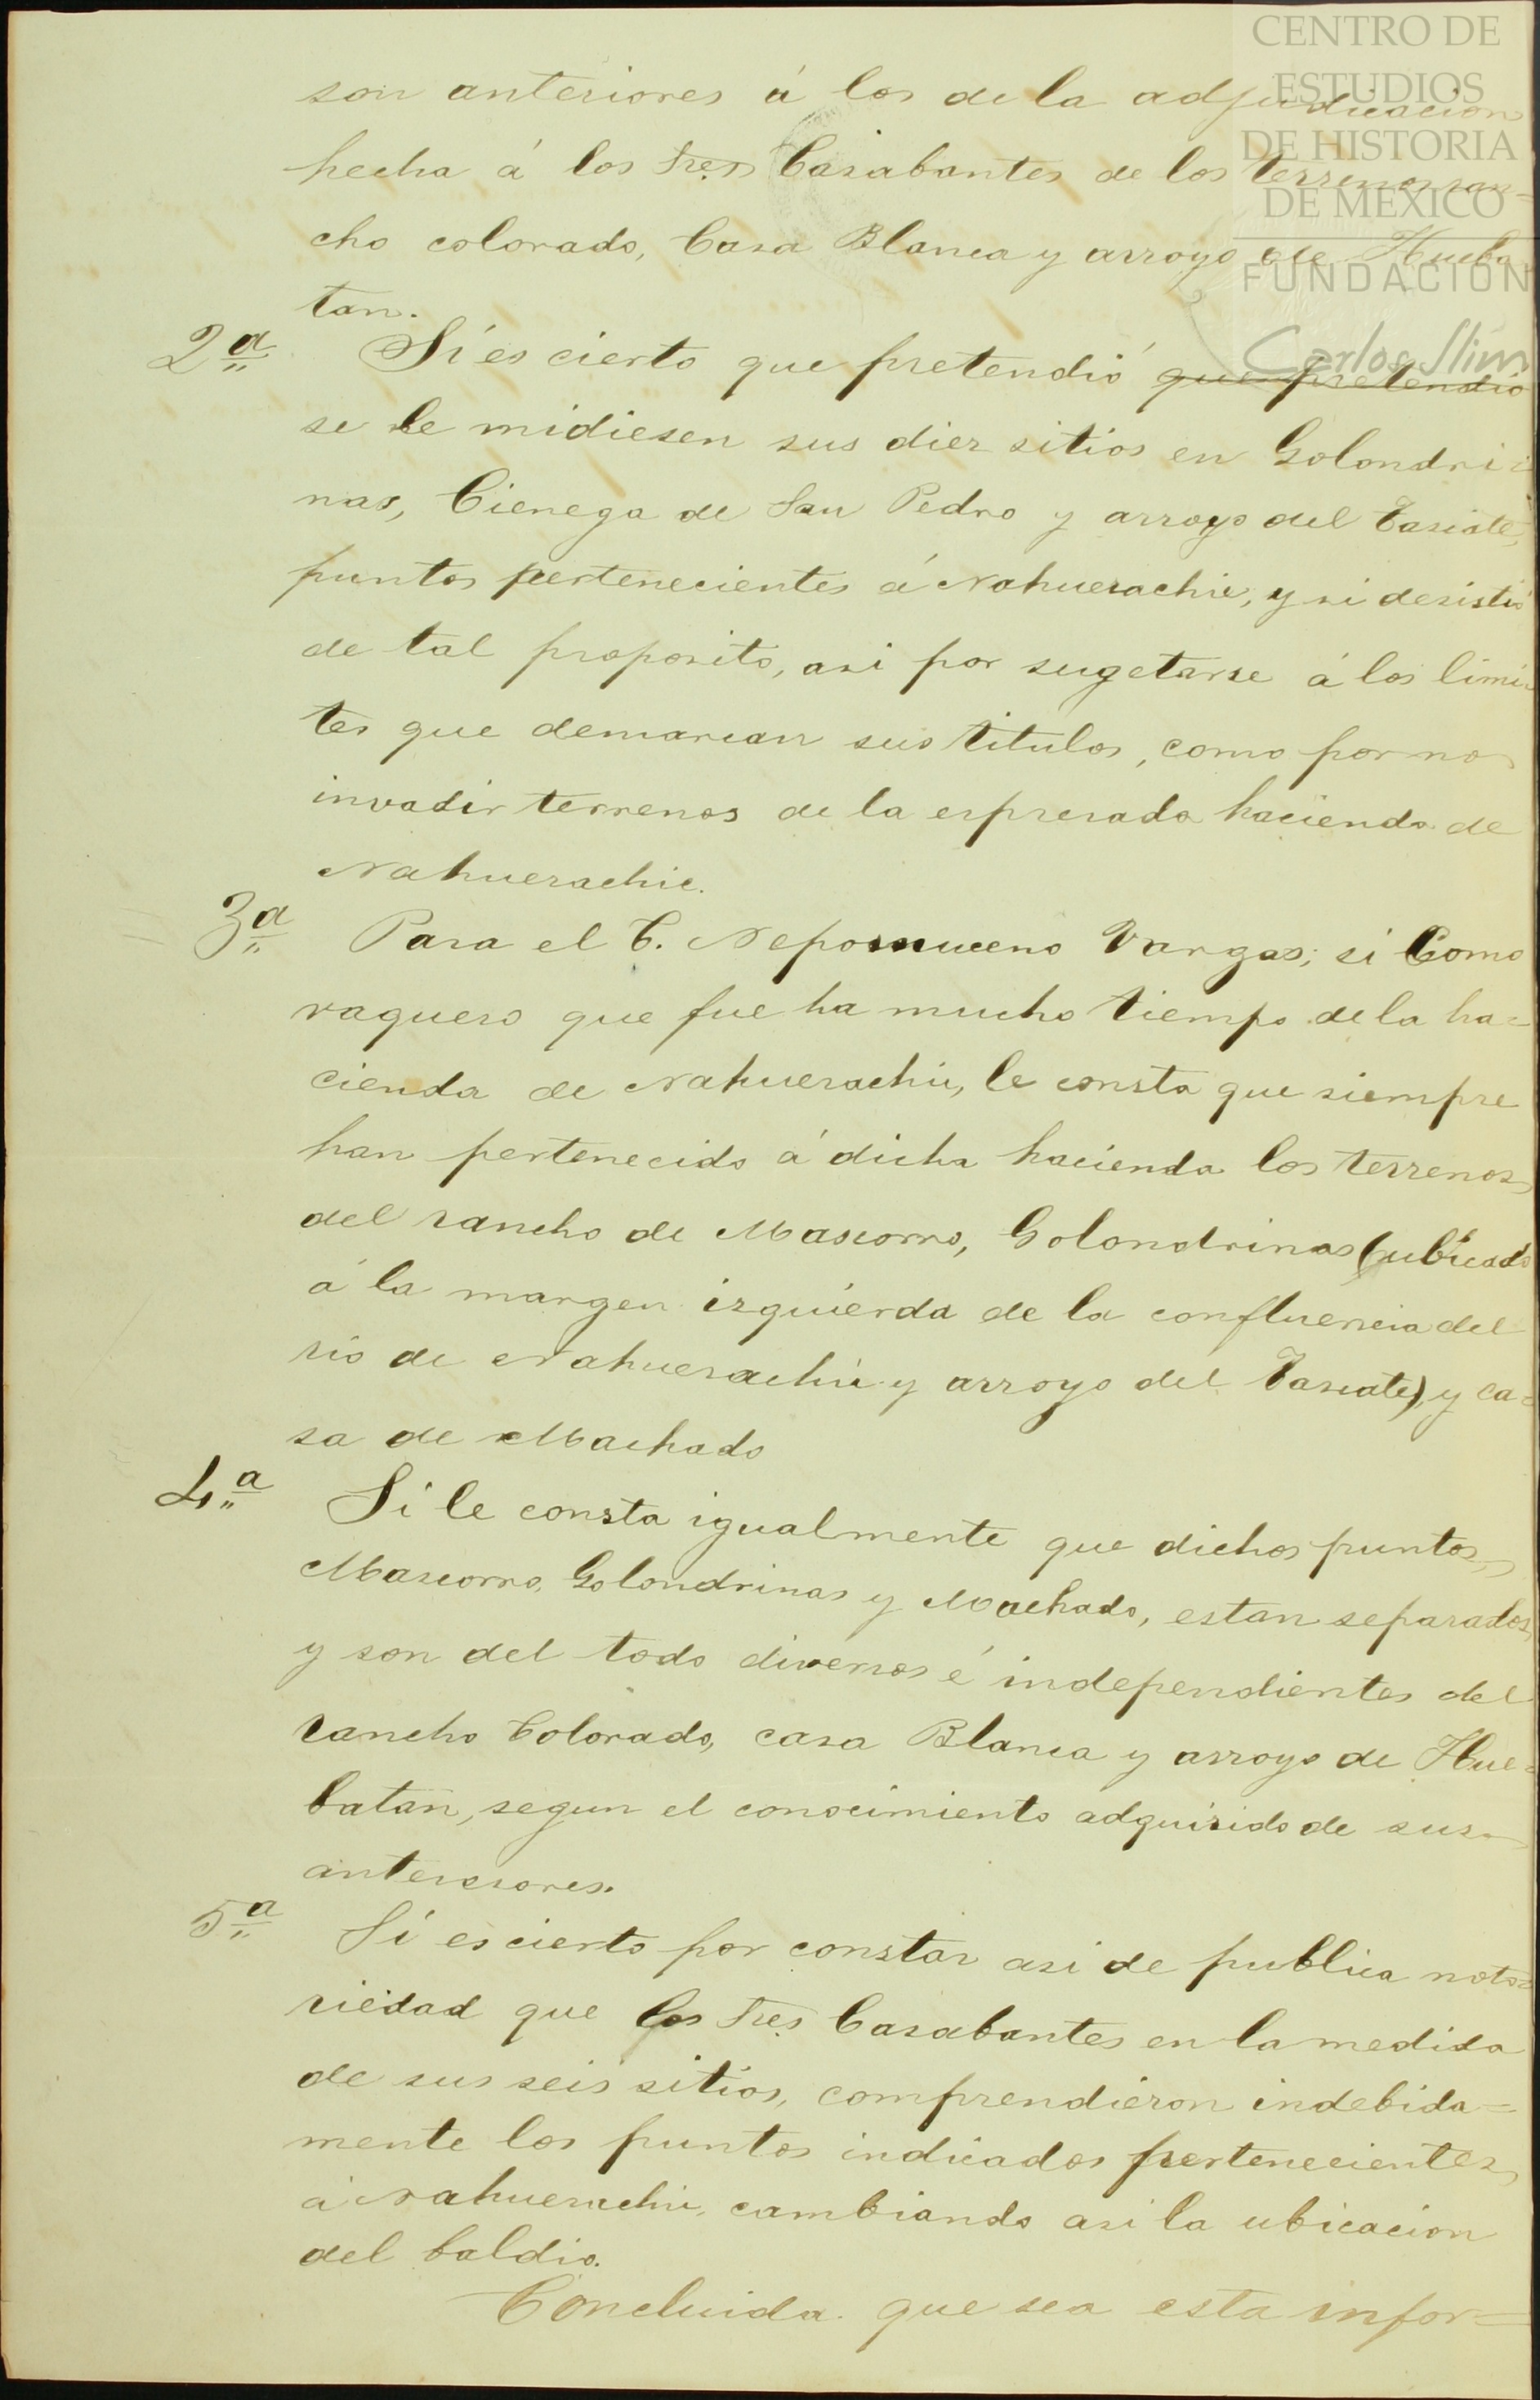 CENTRO DE
ESTUDIOS
DE HISTORIA
DE MEXICO
FUNDACION
Carlos Slim
son anteriores á los de la adjudicacion
hecha á los Sres Casabantes de los terrenos ran=
cho colorado, Casa Blanca y arroyo de Hueba
tan.
2ª Si es cierto que pretendió que pretendió
se le midiesen sus diez sitios en Golondri=
nas, Cienega de San Pedro y arroyo del Tascate,
puntos pertenecientes á Nahuerachic, y si desistió
de tal proposito, asi por sugetarse á los limi=
tes que demarcan sus titulos, como por no
invadir terrenos de la espresada hacienda de
Nahuerachic.
3ª Para el C. Nepomuceno Vargas; si Como
vaquero que fue ha mucho tiempo de la ha=
cienda de Nahuerachic, le consta que siempre
han pertenecido á dicha hacienda los terrenos
del rancho de Mascorro, Golondrinas (ubicado
á la margen izquierda de la confluencia del
rio de Nahuerachic y arroyo del Tascate), y ca=
sa de Machado
4ª Si le consta igualmente que dichos puntos,
Mascorro, Golondrinas y Machado, estan separados,
y son del todo diversos é independientes del
rancho Colorado, casa Blanca y arroyo de Hue=
batan, segun el conocimiento adquirido de sus
antecesores.
5ª Si es cierto por constar asi de publica noto=
riedad que los Sres Casabantes en la medida
de sus seis sitios, comprendieron indebida=
mente los puntos indicados pertenecientes
á Nahuerachic, cambiando asi la ubicacion
del baldio.
Concluida que sea esta infor=